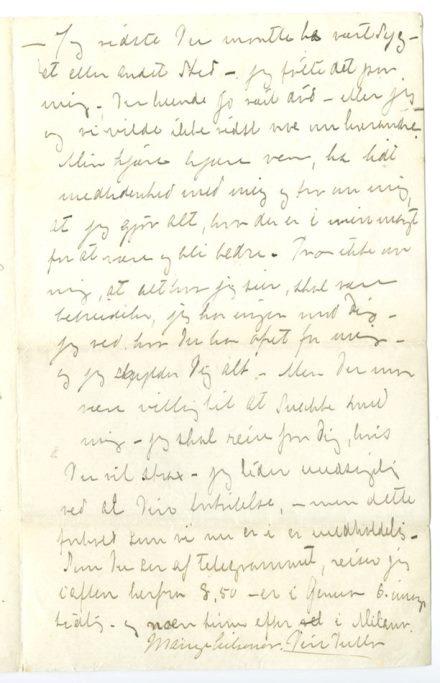 – Jeg vidste Du maatte ha vært syg
et eller andet Sted – jeg følte det paa
mig. Du kunde jo vært død – eller jeg
og vi vilde ikke vidst noe om hverandre.
Min kjære kjære ven, ha lidt
med mig og tro om mig,
at jeg gjør alt, hvad der er i min magt
for at være og bli bedre. Tro ikke om
mig, at alt hvad jeg sier, skal være
bebreidelser, jeg har ingen mod Dig –
jeg ved, hvad Du har for mig –
og jeg skylder Dig alt. – Men Du maa
være villig til at snakke med
mig – jeg skal reise fra Dig, hvis
Du vil strax – jeg lider uudsigelig
ved at Din – men dette
forhold som vi nu er i er uudholdelig.
Som Du ser af telegrammet, reiser jeg
iaften herfra 8,50 – er i Genua 6 imorgen
tidlig – og noen timer efter i Milano.